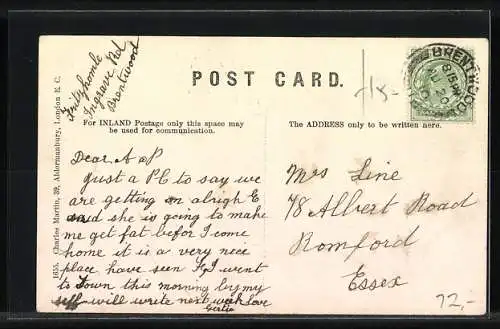 Frilyhomle
Ingrave Rd
Brentwood
POST CARD.
15-
BRENTWOOD
8.15 PM
For INLAND Postage only this space may
be used for communication.
The ADDRESS only to be written here.
1655. Charles Martin, 39, Aldermanbury, London E. C.
Dear A & P
Just a PC to say we
are getting on alrigh E
said she is going to make
me get fat befor I come
home it is a very nice
place have seen F I went
to Town this morning by my
self will write next week love
Gertie
Mrs Line
78 Albert Road
Romford
Essex
72,-